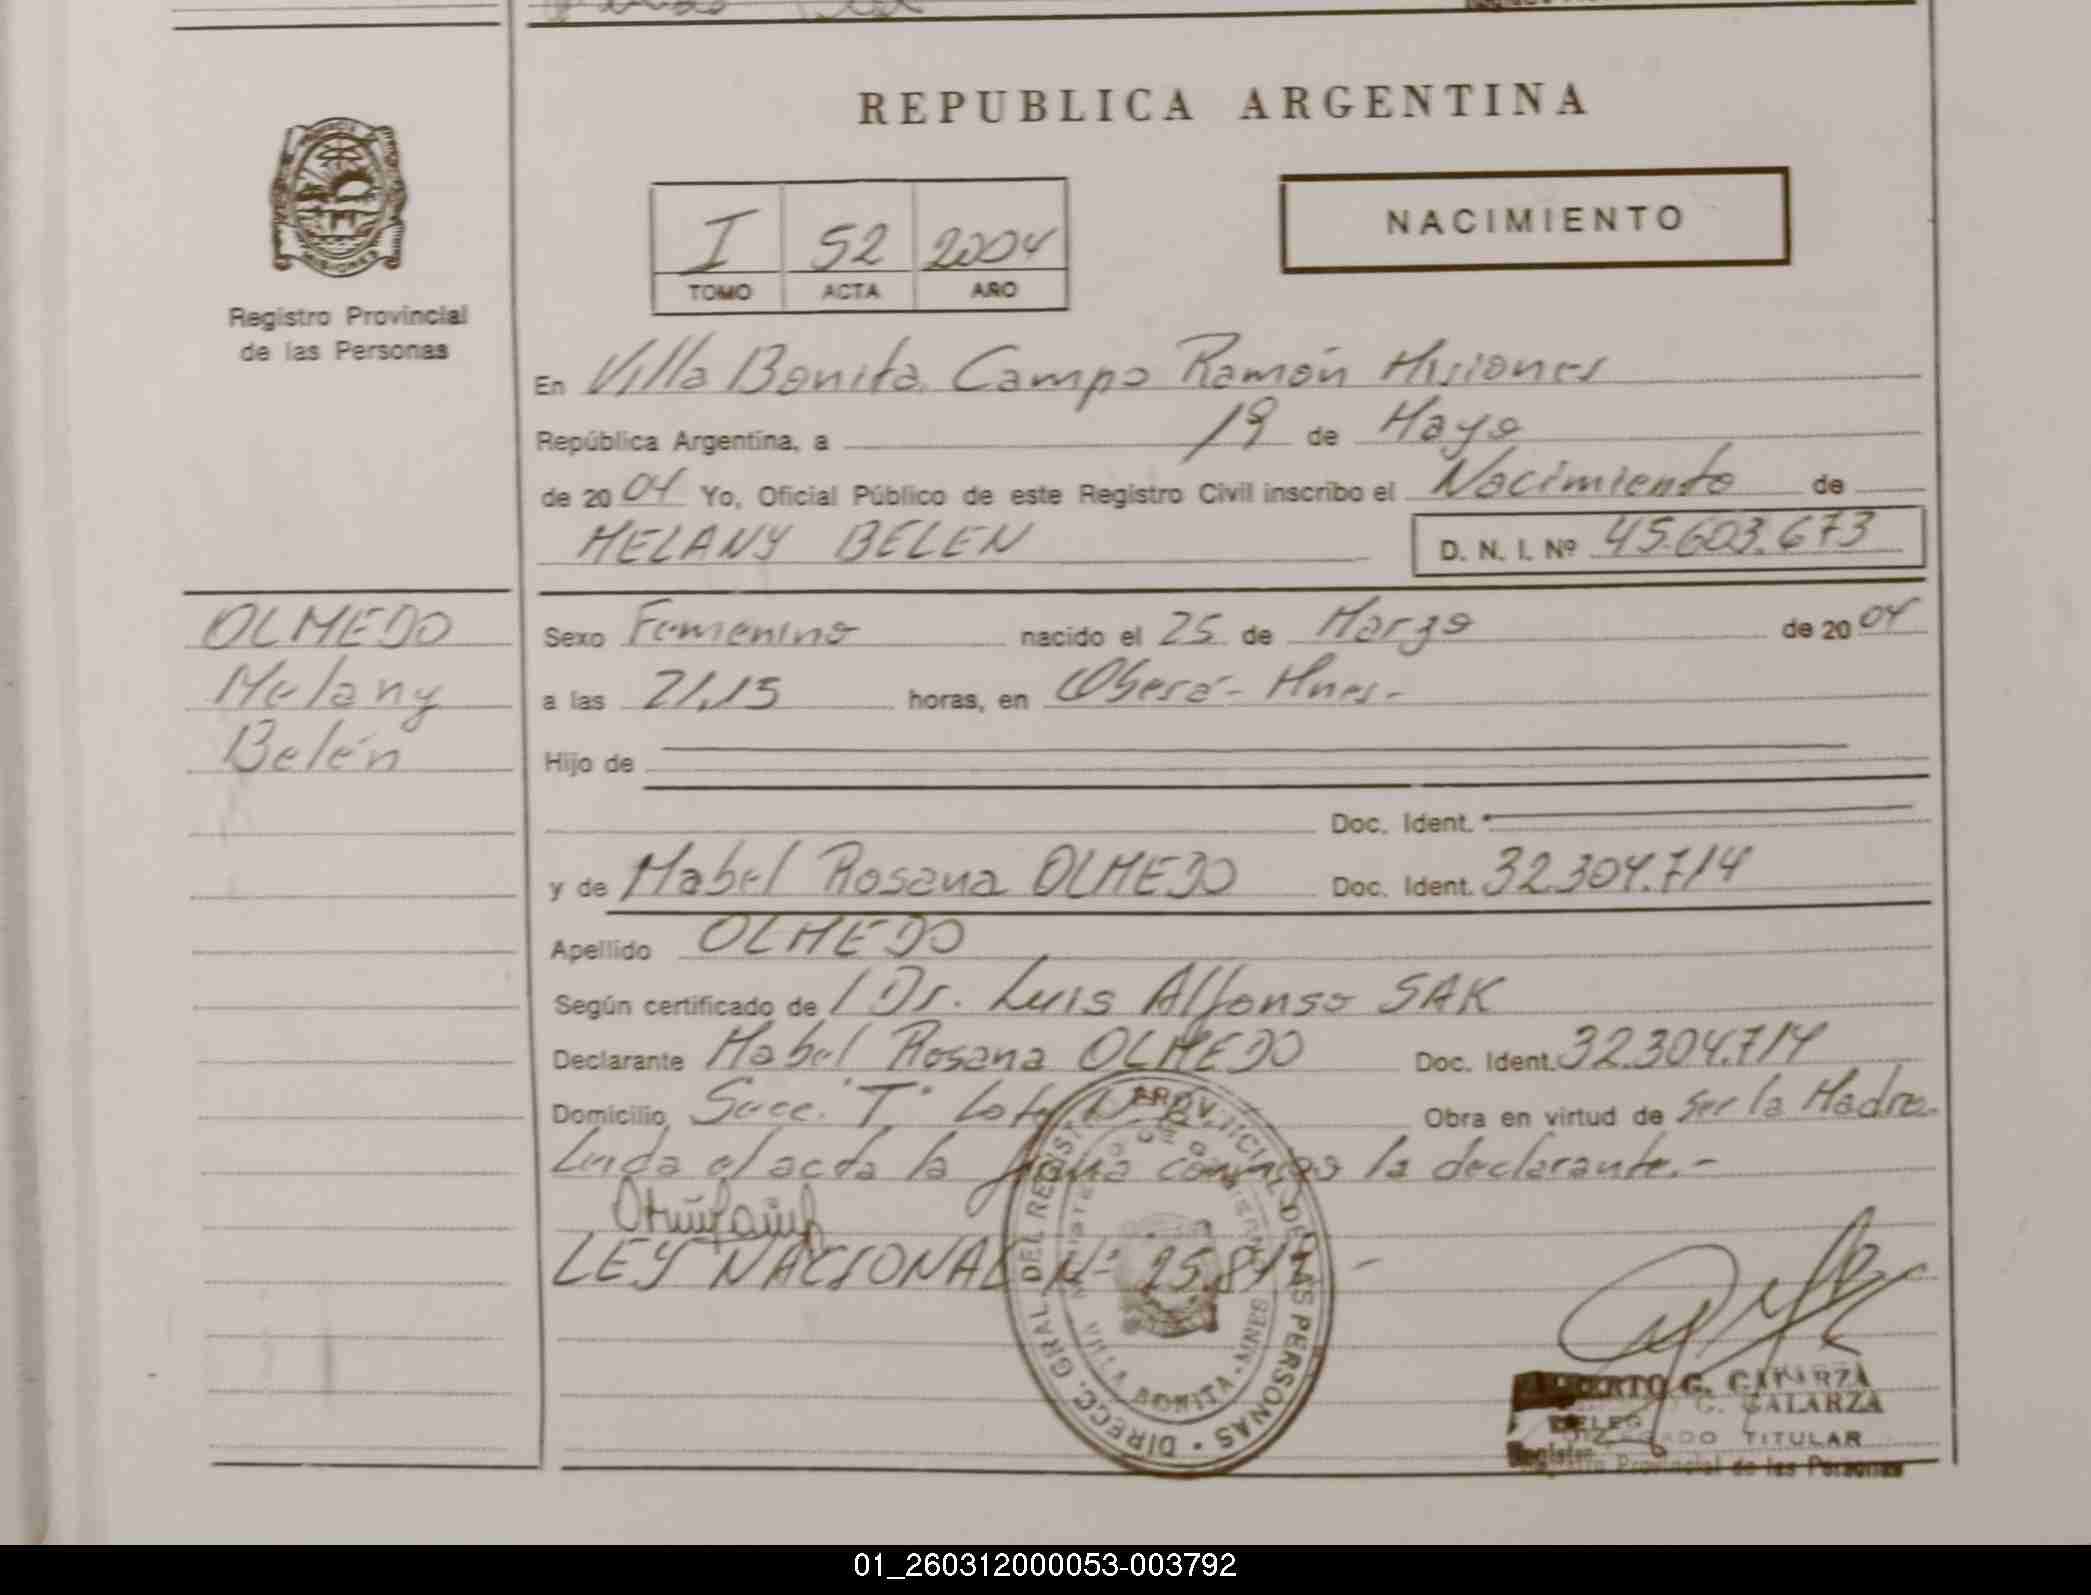 REPUBLICA ARGENTINA
MISIONES
Registro Provincial
de las Personas
I 52 2004
TOMO ACTA AÑO
NACIMIENTO
En Villa Bonita Campo Ramón Misiones
República Argentina, a 19 de Mayo
de 2004 Yo, Oficial Público de este Registro Civil inscribo el Nacimiento de
MELANY BELEN D. N. I. Nº 45.603.673
OLMEDO
Melany
Belén
Sexo Femenino nacido el 25 de Marzo de 2004
a las 21,15 horas, en Oberá - Mnes.-
Hijo de
Doc. Ident.
y de Mabel Rosana OLMEDO Doc. Ident. 32.304.714
Apellido OLMEDO
Según certificado de / Dr. Luis Alfonso SAK
Declarante Mabel Rosana OLMEDO Doc. Ident. 32.304.714
Domicilio Secc. "T" Obra en virtud de Ser la Madre.
Leida el acta la firma conmigo la declarante.-
LEY NACIONAL Nº
DIRECC. GRAL. DEL REGIST. PROVINCIAL DE LAS PERSONAS
VILLA BONITA - MNES
G. GALARZA
TITULAR
Registro Provincial de las Personas
01_260312000053-003792